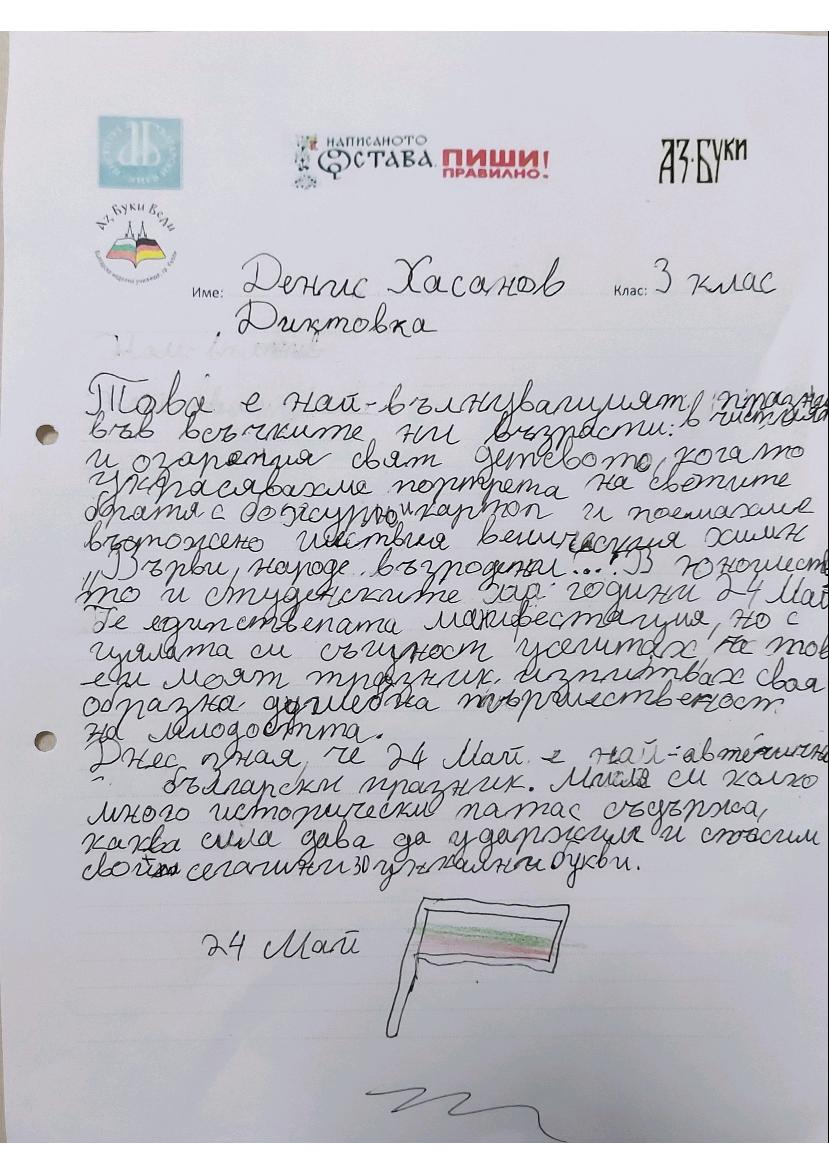 НАПИСАНОТО
ОСТАВА. ПИШИ
ПРАВИЛНО!
АЗ·БУКИ
Аз, Буки, Веди
Име: Денис Хасанов Клас: 3 клас
Диктовка
Това е най-вълнуващият празн
във всъчките ни възрасти: в чистият
и озарения свят детсвото, когато
украсявахме портрета на светите
братя с божури и картон и поемахме
въ тожено шествия величсския химн
„Върви, народе възродени!...". В юношест
то и студенските годины 24 Май
бе единствената манифестация, но с
цялата си същност усещах, че тов
е и моят празник. изпитвах своя
образна душевна тържественост
на младостта.
Днес зная, че 24 Май е най-автентична
български празник. Мисля си колко
много исторически патос съдържа,
каква сила дава да удържим и спасим
свойте сегашни 30 уникални букви.
24 Май